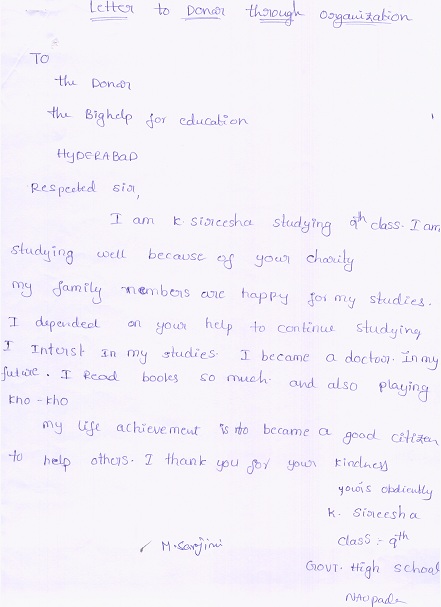 Letter to Donor through Organization
To
the Donor
the Bighelp for education
HYDERABAD
Respected sir,
I am K. Sireesha studying 9th class. I am
studying well because of your charity
my family members are happy for my studies.
I depended on your help to continue studying
I Interst in my studies. I became a doctor. In my
future. I Read books so much. and also playing
kho-kho
my life achievement is to became a good citizen
to help others. I thank you for your kindness
yours obdieully
K. Sireesha
class :- 9th
M. Sarojini
Govt. High school
Naupada